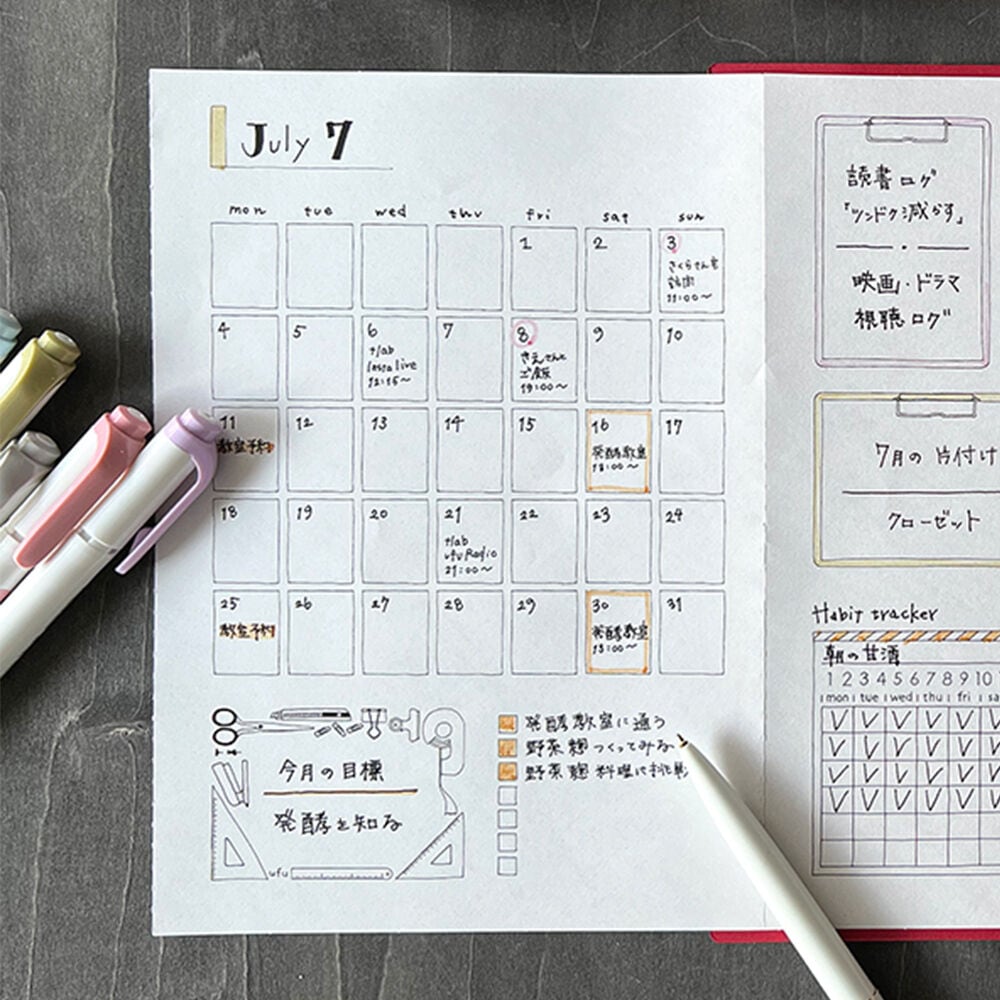 July 7
mon tue wed thu fri sat sun
1 2 3
さくらさん宅
訪問
11:00〜
4 5 6 7 8 9 10
+lab
Insta live
12:15〜
さえさんと
ご飯
19:00〜
11 12 13 14 15 16 17
教室予約
発酵教室
13:00〜
18 19 20 21 22 23 24
+lab
ufu Radio
21:00〜
25 26 27 28 29 30 31
教室予約
発酵教室
13:00〜
今月の目標
発酵を知る
ufu
発酵教室に通う
野菜麹つくってみる
野菜麹料理に挑戦
読書ログ
「ツンドク減かす」
映画・ドラマ
視聴ログ
7月の片付け
クローゼット
Habit tracker
朝の甘酒
1 2 3 4 5 6 7 8 9 10
mon tue wed thu fri sa